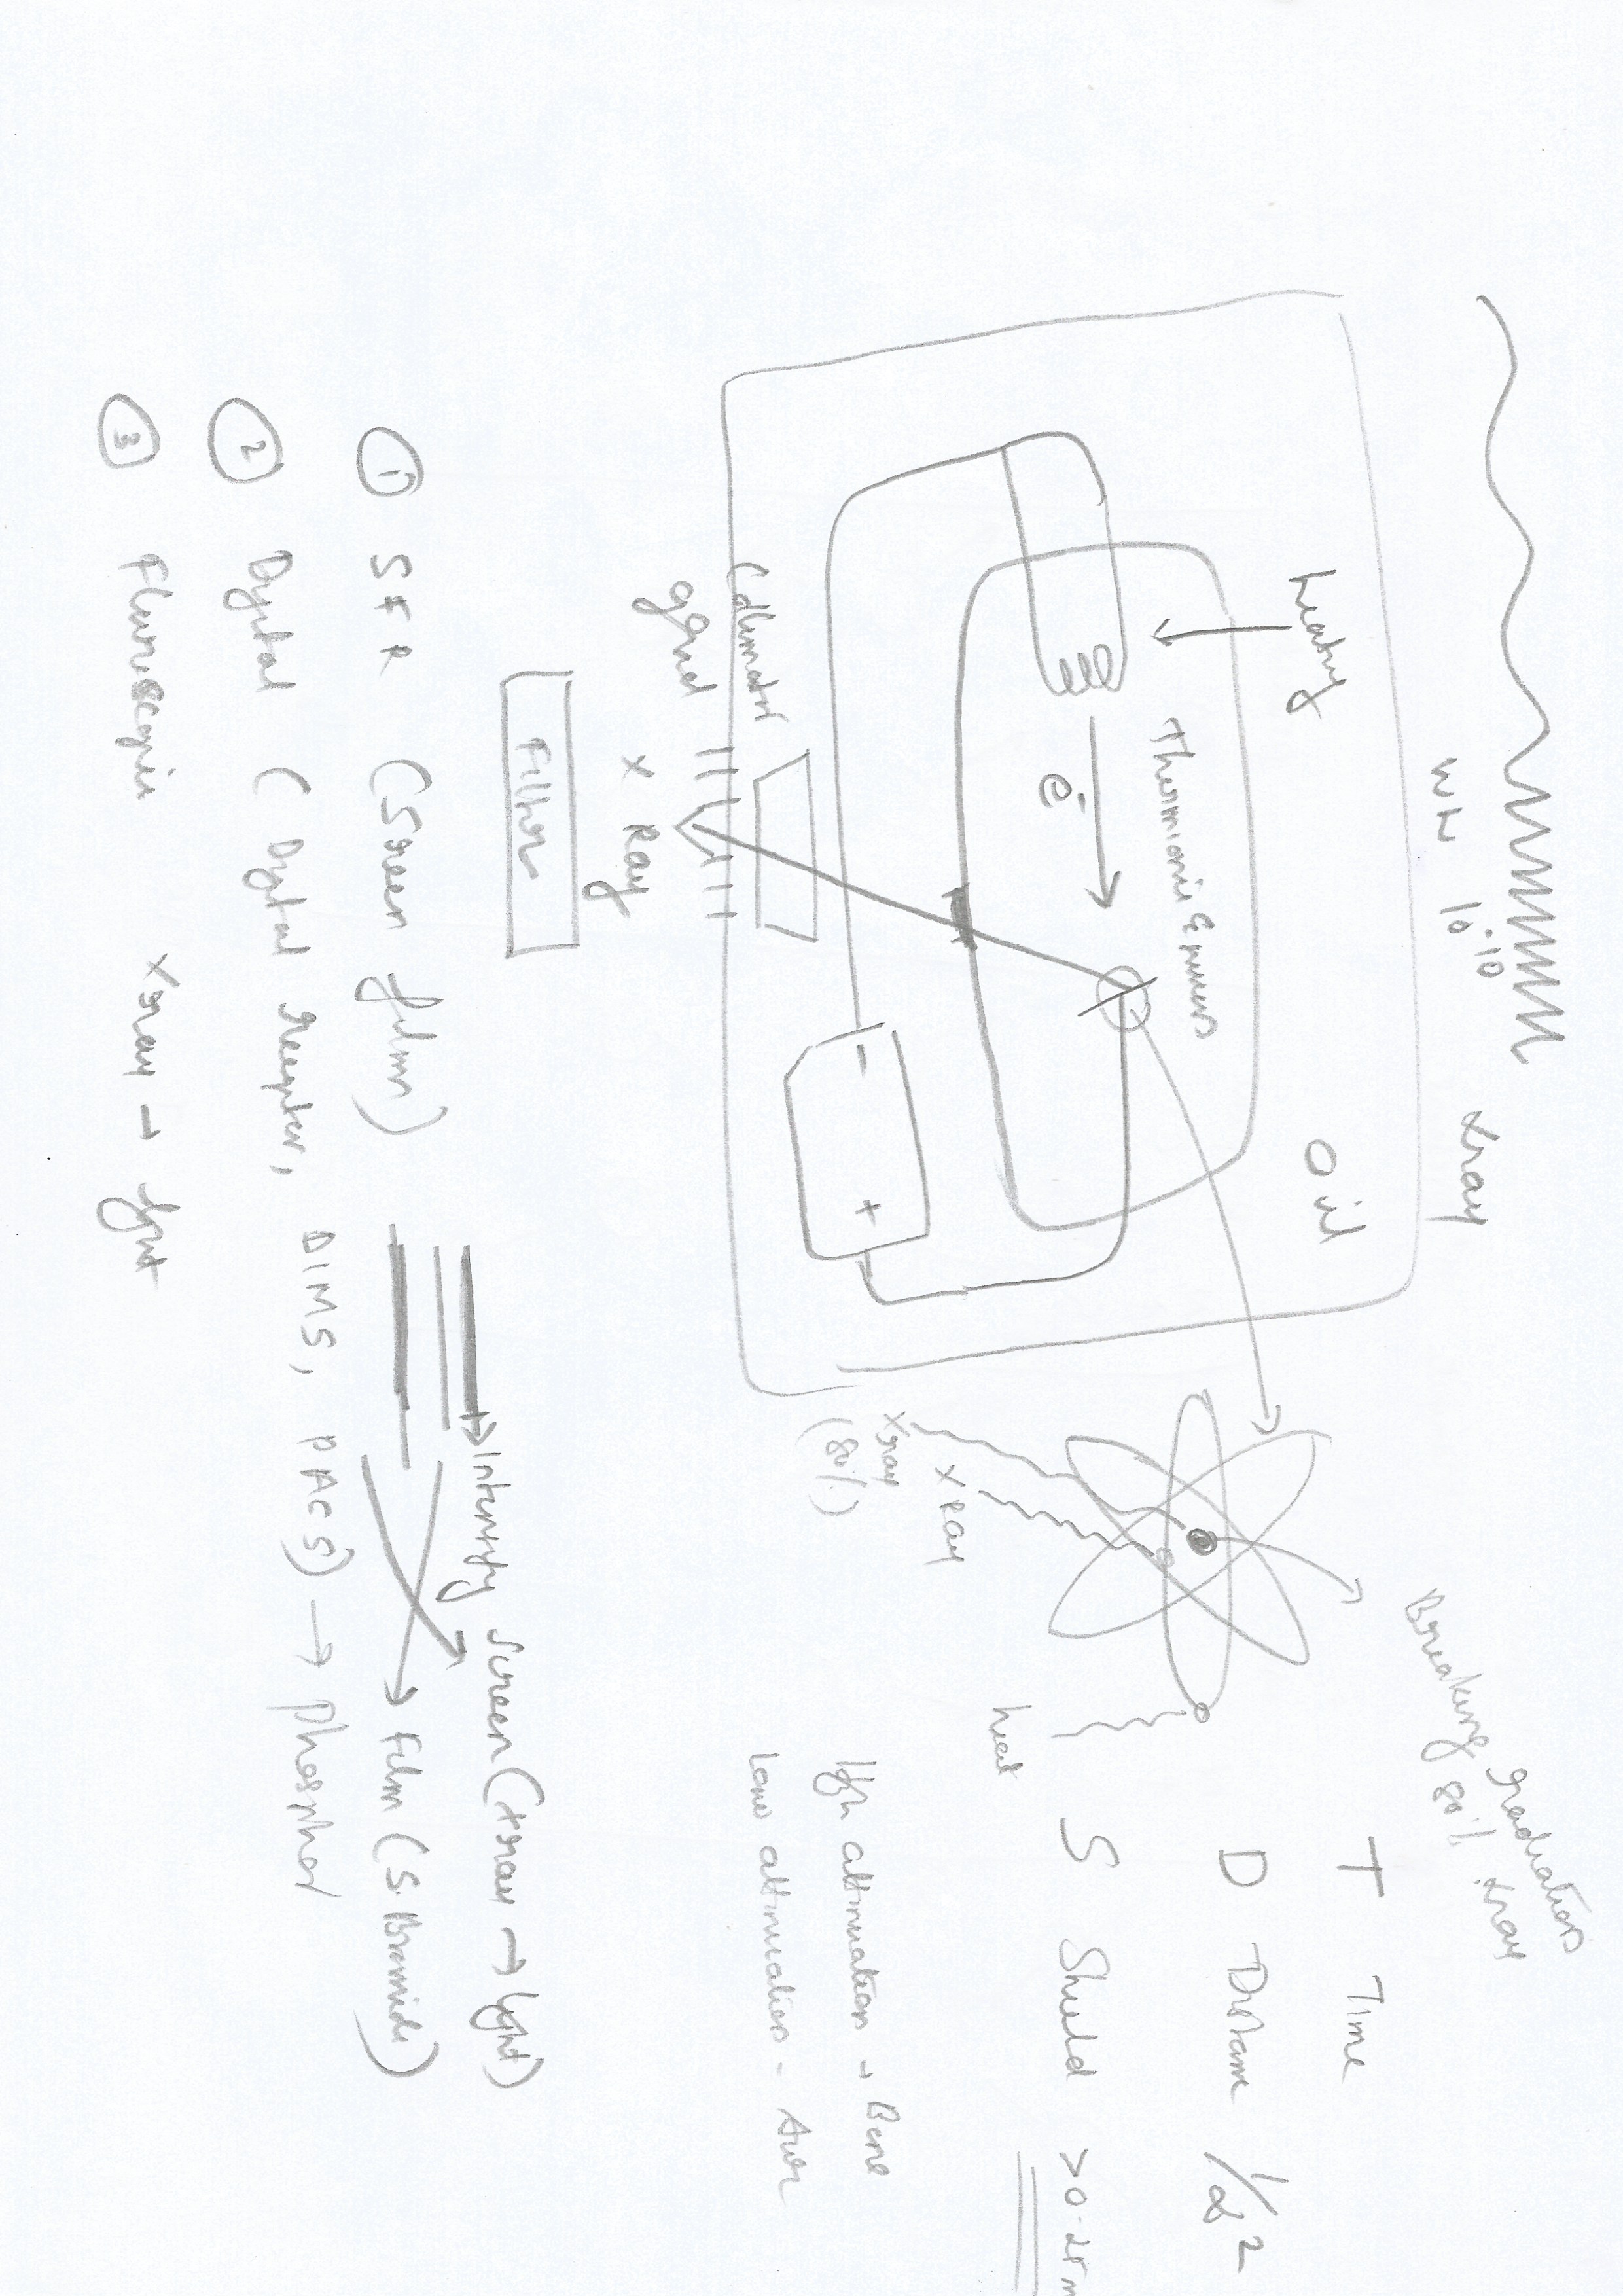 Xray
WL 10-10
Heating
Oil
Thermionic Emission
e-
- +
Collimator
grid
X Ray
Filter
Breaking radiation
80% Xray
X Ray
Xray
(80%)
heat
T Time
D Distance 1/d2
S Shield >0.25 m
High attinuation → Bone
Low attinuation -
1 SFR (Screen film)
Intensity screen (xray → light)
Film (S. Bromide)
2 Digital (Digital receptor, DIMS, PACS) → phosphor
3 Fluroscopic xray → light